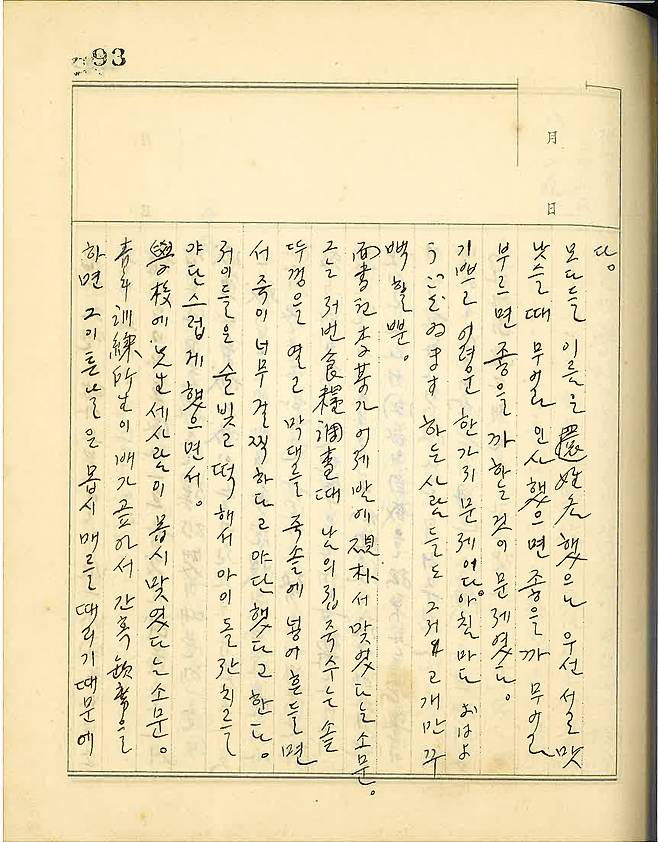 93
月
日
다。
모다들 이름을 還姓名했으니 우선 서로 맛
낫을때 무어라 인사했으면 좋을까 무어라
부르면 좋을까 하는 것이 문제였다。
기쁘고 어령운 한가지 문제이다。아침마다 おはよ
うございます 하는 사람들도 그저 고개만 꾸
벅할뿐。
面書記 李某가 어제밤에 서 맞었다는 소문。
그는 저번 食糧調査때 남의집 죽수는 솥
두껑을 열고 막대를 죽솥에 넣어 흔들면
서 죽이 너무 걸찍하다고 야단했다고 한다。
저이들은 술빚고 떡해서 아이돌잔치를
야단스럽게 했으면서。
學校에 先生 세사람이 몹시 맞였다는 소문。
靑年訓練所生이 배가 곺아서 간혹 缺席을
하면 그이튼날은 몹시 매를 때리기때문에